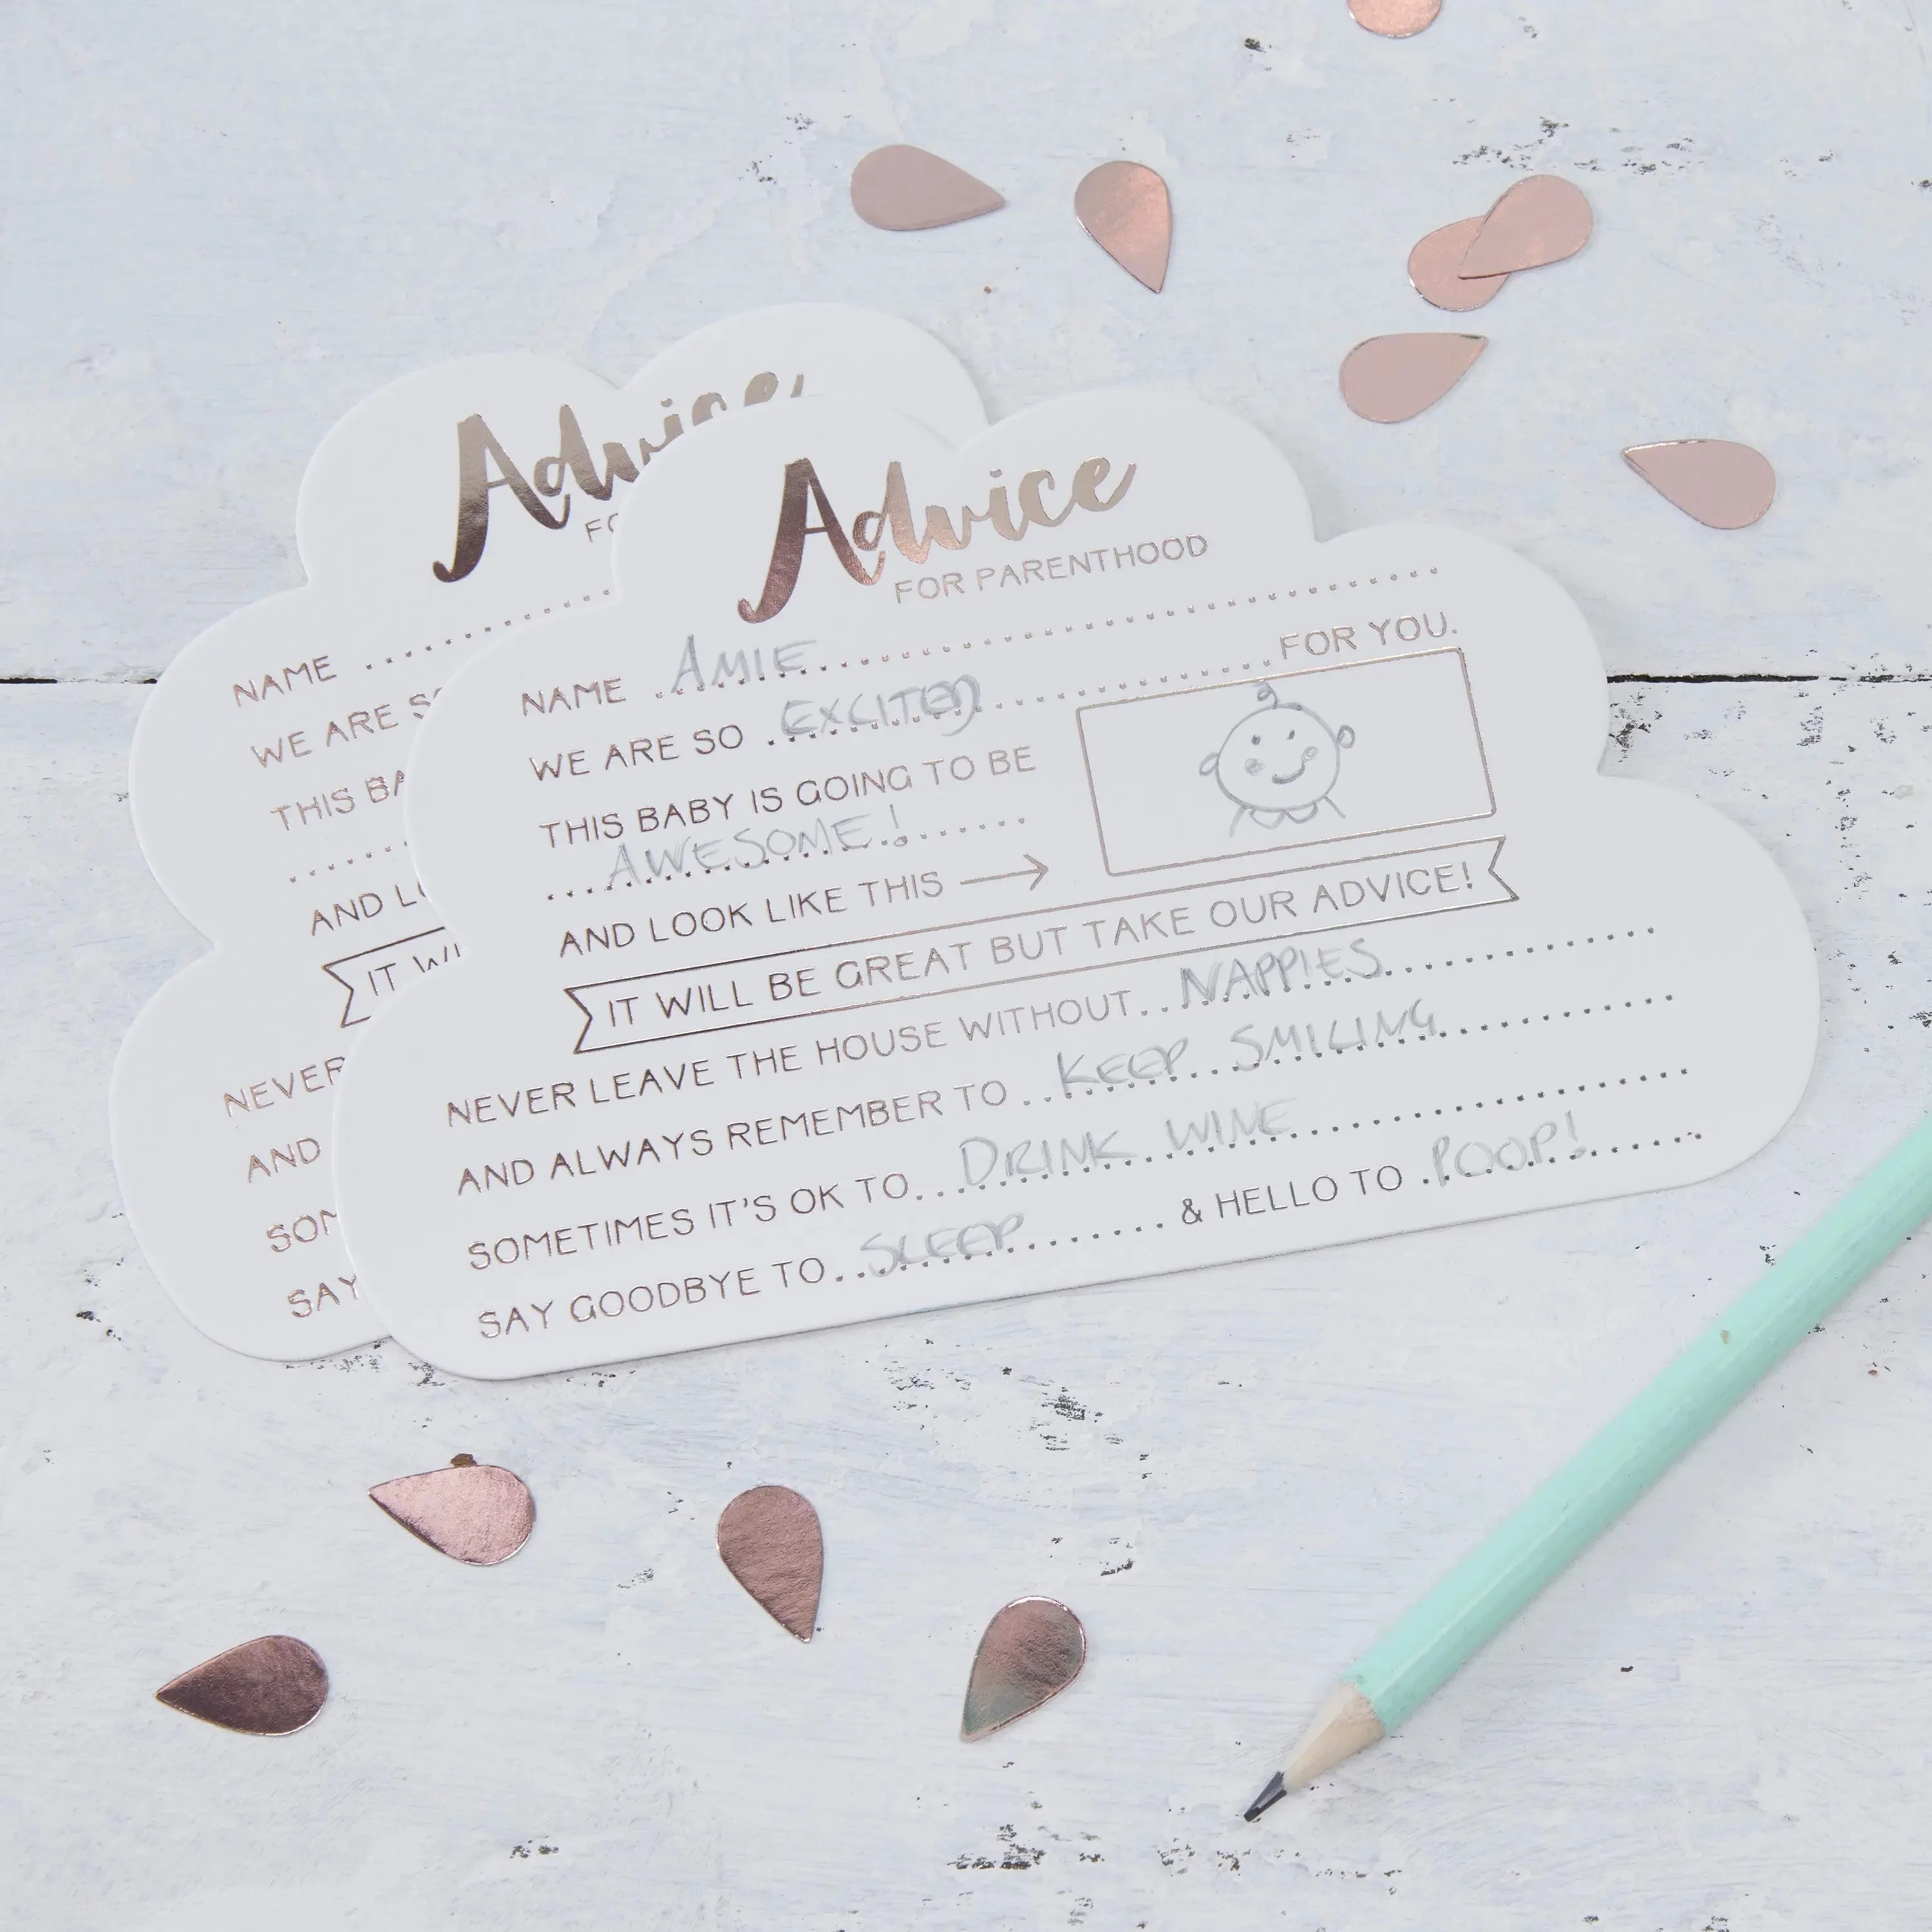 Advice
NAME
WE ARE
THIS
AND
IT
NEVER
AND
SAY
Advice
FOR PARENTHOOD
NAME AMIE
WE ARE SO EXCITED FOR YOU.
THIS BABY IS GOING TO BE
AWESOME!
AND LOOK LIKE THIS →
IT WILL BE GREAT BUT TAKE OUR ADVICE!
NEVER LEAVE THE HOUSE WITHOUT NAPPIES
AND ALWAYS REMEMBER TO KEEP SMILING
SOMETIMES IT'S OK TO DRINK WINE
SAY GOODBYE TO SLEEP & HELLO TO POOP!